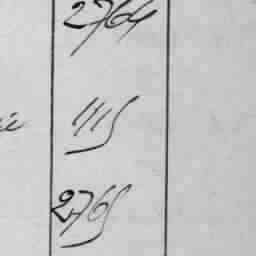 2764
1115
2765